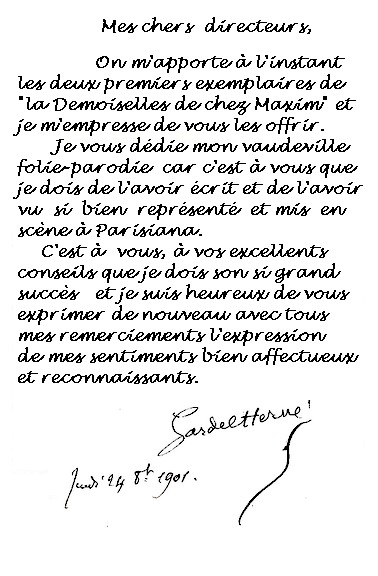 Mes chers directeurs,
On m'apporte à l'instant
les deux premiers exemplaires de
"la Demoiselles de chez Maxim" et
je m'empresse de vous les offrir.
Je vous dédie mon vaudeville
folie-parodie car c'est à vous que
je dois de l'avoir écrit et de l'avoir
vu si bien représenté et mis en
scène à Parisiana.
C'est à vous, à vos excellents
conseils que je dois son si grand
succès et je suis heureux de vous
exprimer de nouveau avec tous
mes remerciements l'expression
de mes sentiments bien affectueux
et reconnaissants.
Gardel Herve
Jeudi 24 8bre 1901.